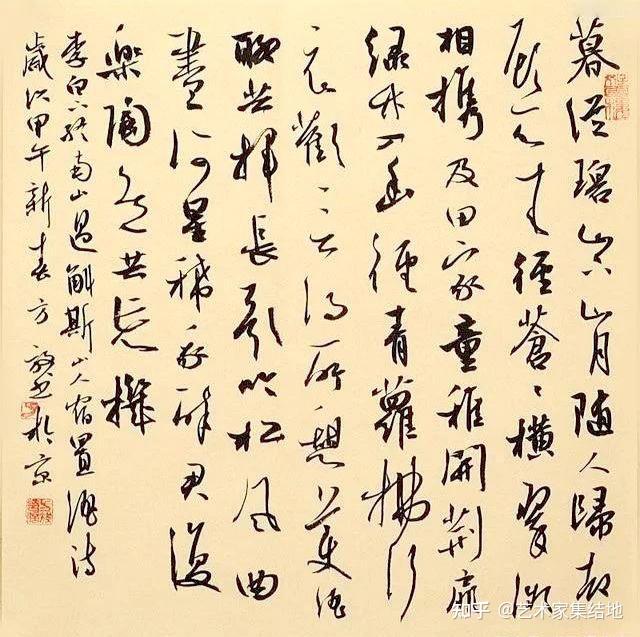 暮從碧山下山月随人歸却
顧所来徑蒼〻横翠微
相攜及田家童稚開荆扉
緑竹入幽徑青蘿拂行
衣歡言得所憩美酒
聊共揮長歌吟松風曲
盡河星稀我醉君復
樂陶然共忘機
李白下終南山過斛斯山人宿置酒詩
歲次甲午新春方於京
知乎 @艺术家集结地